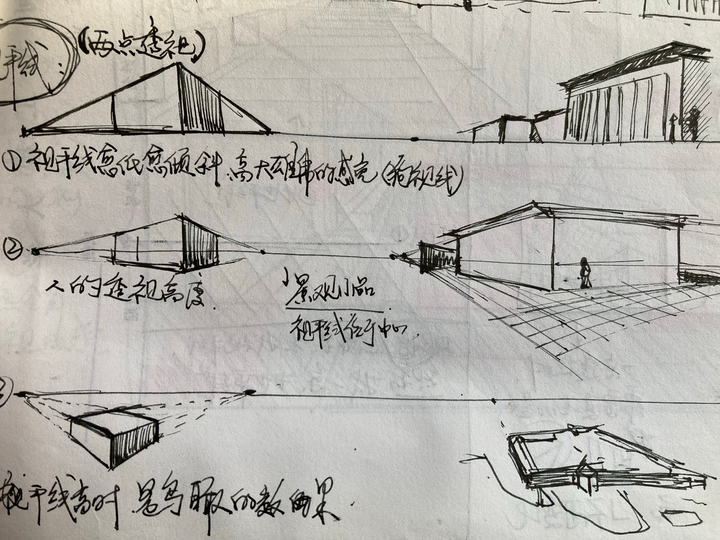 平线：(两点透视)
① 视平线愈低愈倾斜 高大雄伟的感觉（看视线）
②
人的透视高度
景观小品
视平线位于中心
视平线高时 是鸟瞰的效果.